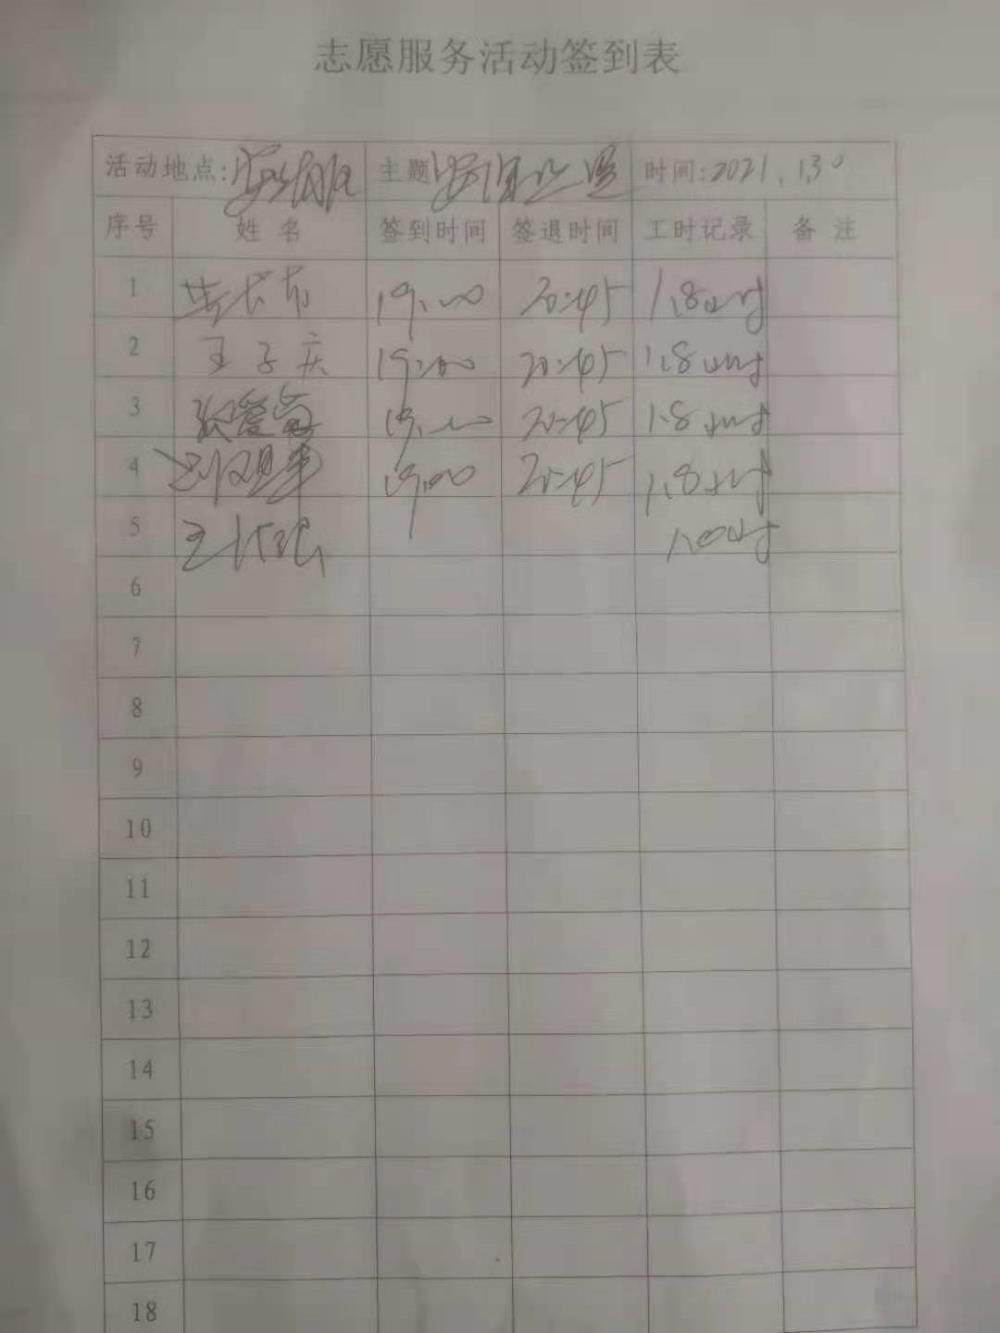 志愿服务活动签到表
活动地点: 主题 时间:2021.1.30
序号 姓名 签到时间 签退时间 工时记录 备注
1 19:00 20:45 1.8小时
2 王子庆 19:00 20:45 1.8小时
3 张爱 19:00 20:45 1.8小时
4 19:00 20:45 1.8小时
5 王 小时
6
7
8
9
10
11
12
13
14
15
16
17
18